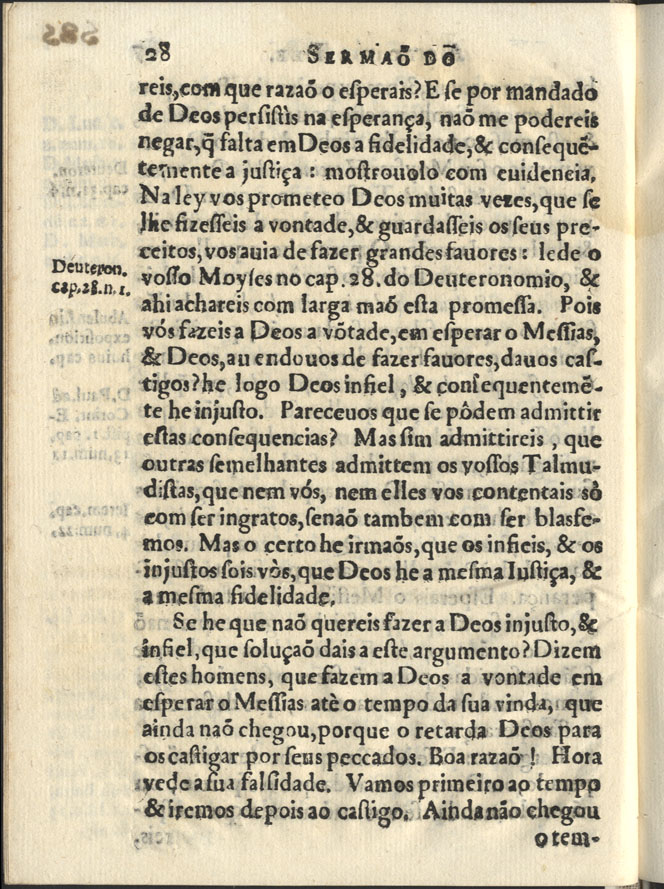 28 SERMAÕ DÕ
reis, com que razaõ o eſperais? E ſe por mandado
de Deos perſiſtìs na eſperança, naõ me podereis
negar, q̃ falta em Deos a fidelidade, & conſequẽ-
temente a juſtiça: moſtrouolo com euidencia.
Na ley vos prometeo Deos muitas vezes, que ſe
lhe fizeſſeis a vontade, & guardaſſeis os ſeus pre-
ceitos, vos auia de fazer grandes fauores: lede o
Deuteron.
cap. 28. n. 1.
voſſo Moyſes no cap. 28. do Deuteronomio, &
ahi achareis com larga maõ eſta promeſſa. Pois
vós fazeis a Deos a võtade, em eſperar o Meſſias,
& Deos, auendouos de fazer fauores, dauos caſ-
tigos? he logo Deos infiel, & conſequentemẽ-
te he injuſto. Pareceuos que ſe pôdem admittir
eſtas conſequencias? Mas ſim admittireis, que
outras ſemelhantes admittem os voſſos Talmu-
diſtas, que nem vós, nem elles vos contentais sò
com ſer ingratos, ſenaõ tambem com ſer blasfe-
mos. Mas o certo he irmaõs, que os infieis, & os
injuſtos ſois vòs, que Deos he a meſma Iuſtiça, &
a meſma fidelidade.
Se he que naõ quereis fazer a Deos injuſto, &
infiel, que ſoluçaõ dais a eſte argumento? Dizem
eſtes homens, que fazem a Deos a vontade em
eſperar o Meſſias atè o tempo da ſua vinda, que
ainda naõ chegou, porque o retarda Deos para
os caſtigar por ſeus peccados. Boa razaõ! Hora
vede a ſua falſidade. Vamos primeiro ao tempo
& iremos depois ao caſtigo. Ainda não chegou
o tem-